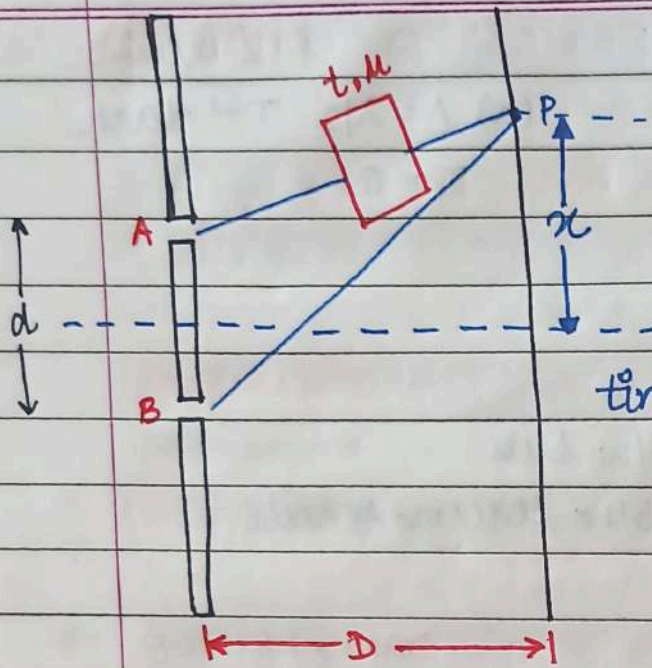 t, μ
P
A
x
d
B
tir
D